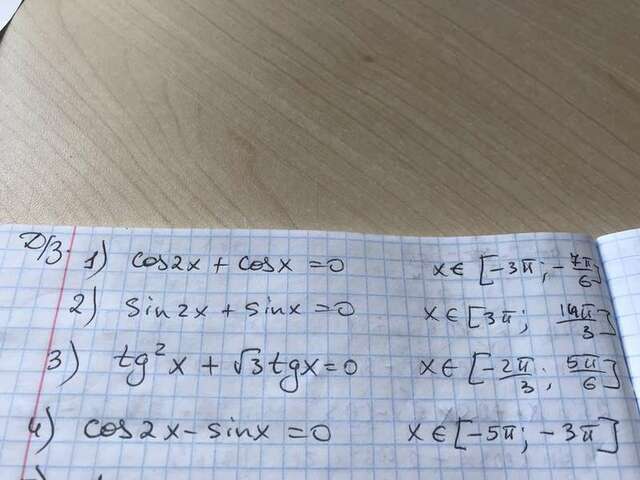 Д/З. 1) cos2x + cosx = 0 x ∈ [-3π ; -7π/6]
2) sin2x + sinx = 0 x ∈ [3π ; 14π/3]
3) tg²x + √3 tgx = 0 x ∈ [-2π/3 ; 5π/6]
4) cos2x - sinx = 0 x ∈ [-5π ; -3π]